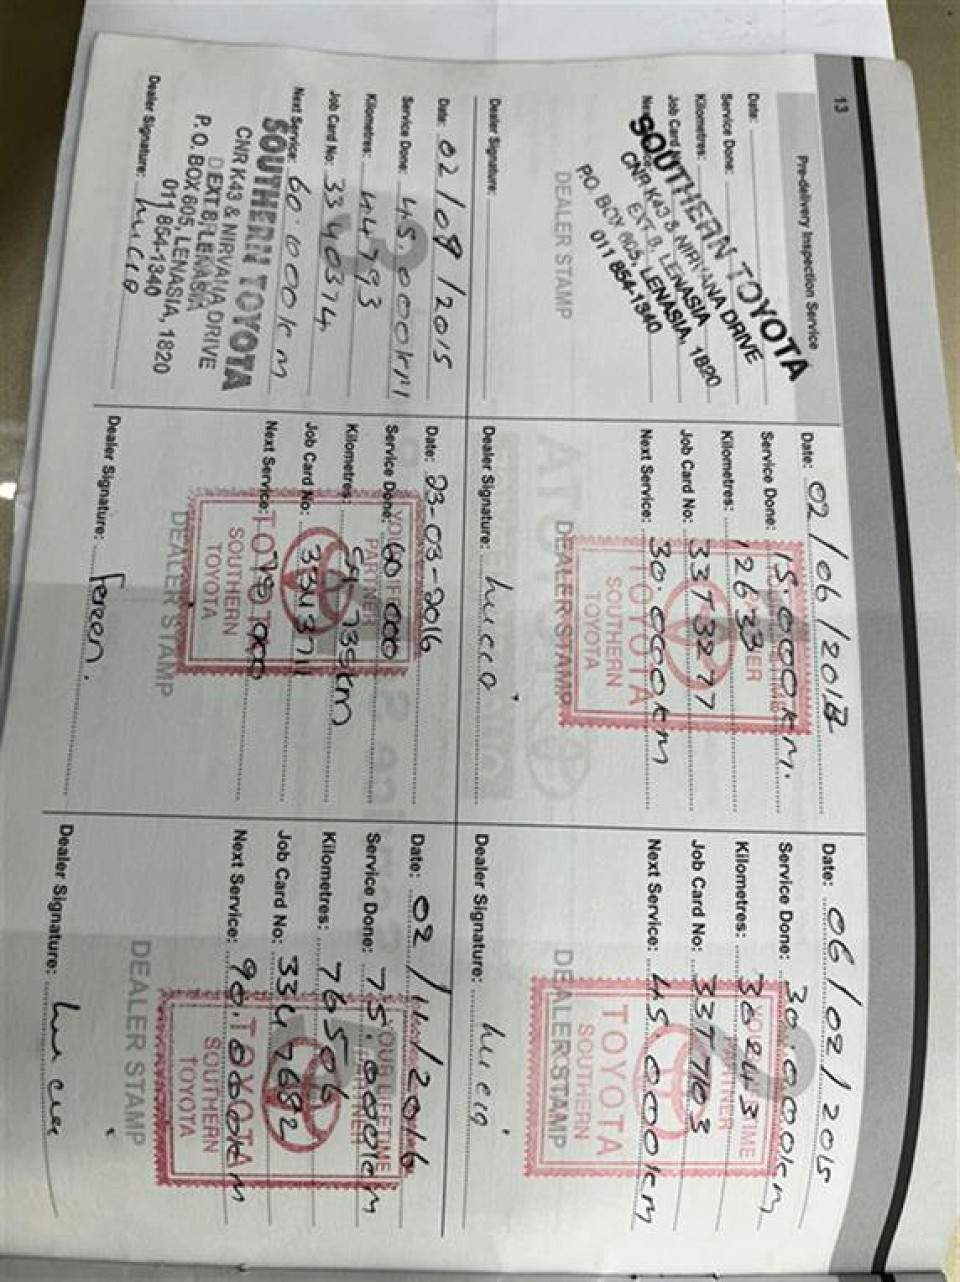 13
Pre-delivery Inspection Service
Date:
Service Done:
Kilometres:
Job Card No:
Next Service:
SOUTHERN TOYOTA
CNR K43 & NIRVANA DRIVE
EXT 8, LENASIA
P.O. BOX 605, LENASIA, 1820
011 854-1340
DEALER STAMP
Dealer Signature:
Date: 02/06/2013
Service Done: 15.000km.
Kilometres: 12633
Job Card No: 3373277
Next Service: 30.000km
TOYOTA
SOUTHERN
TOYOTA
DEALER STAMP
Dealer Signature:
Date: 06/02/2015
Service Done: 30.000km
Kilometres: 30243
Job Card No: 3377103
Next Service: 45.000km
YOUR LIFETIME
PARTNER
TOYOTA
SOUTHERN
TOYOTA
DEALER STAMP
Dealer Signature: Lucia
Date: 02/09/2015
Service Done: 45.000km
Kilometres: 44793
Job Card No: 3340374
Next Service: 60.000km
SOUTHERN TOYOTA
CNR K43 & NIRVANA DRIVE
EXT 8, LENASIA
P.O. BOX 605, LENASIA, 1820
011 854-1340
Dealer Signature: Lucia
Date: 23-03-2016
Service Done: 60 000
Kilometres: 735km
Job Card No: 3343711
Next Service: 000
YOUR LIFETIME
PARTNER
TOYOTA
SOUTHERN
TOYOTA
DEALER STAMP
Dealer Signature: Fereen.
Date: 02/11/2016
Service Done: 75.000km
Kilometres: 76506
Job Card No: 3347682
Next Service: 90.000km
YOUR LIFETIME
PARTNER
TOYOTA
SOUTHERN
TOYOTA
DEALER STAMP
Dealer Signature: